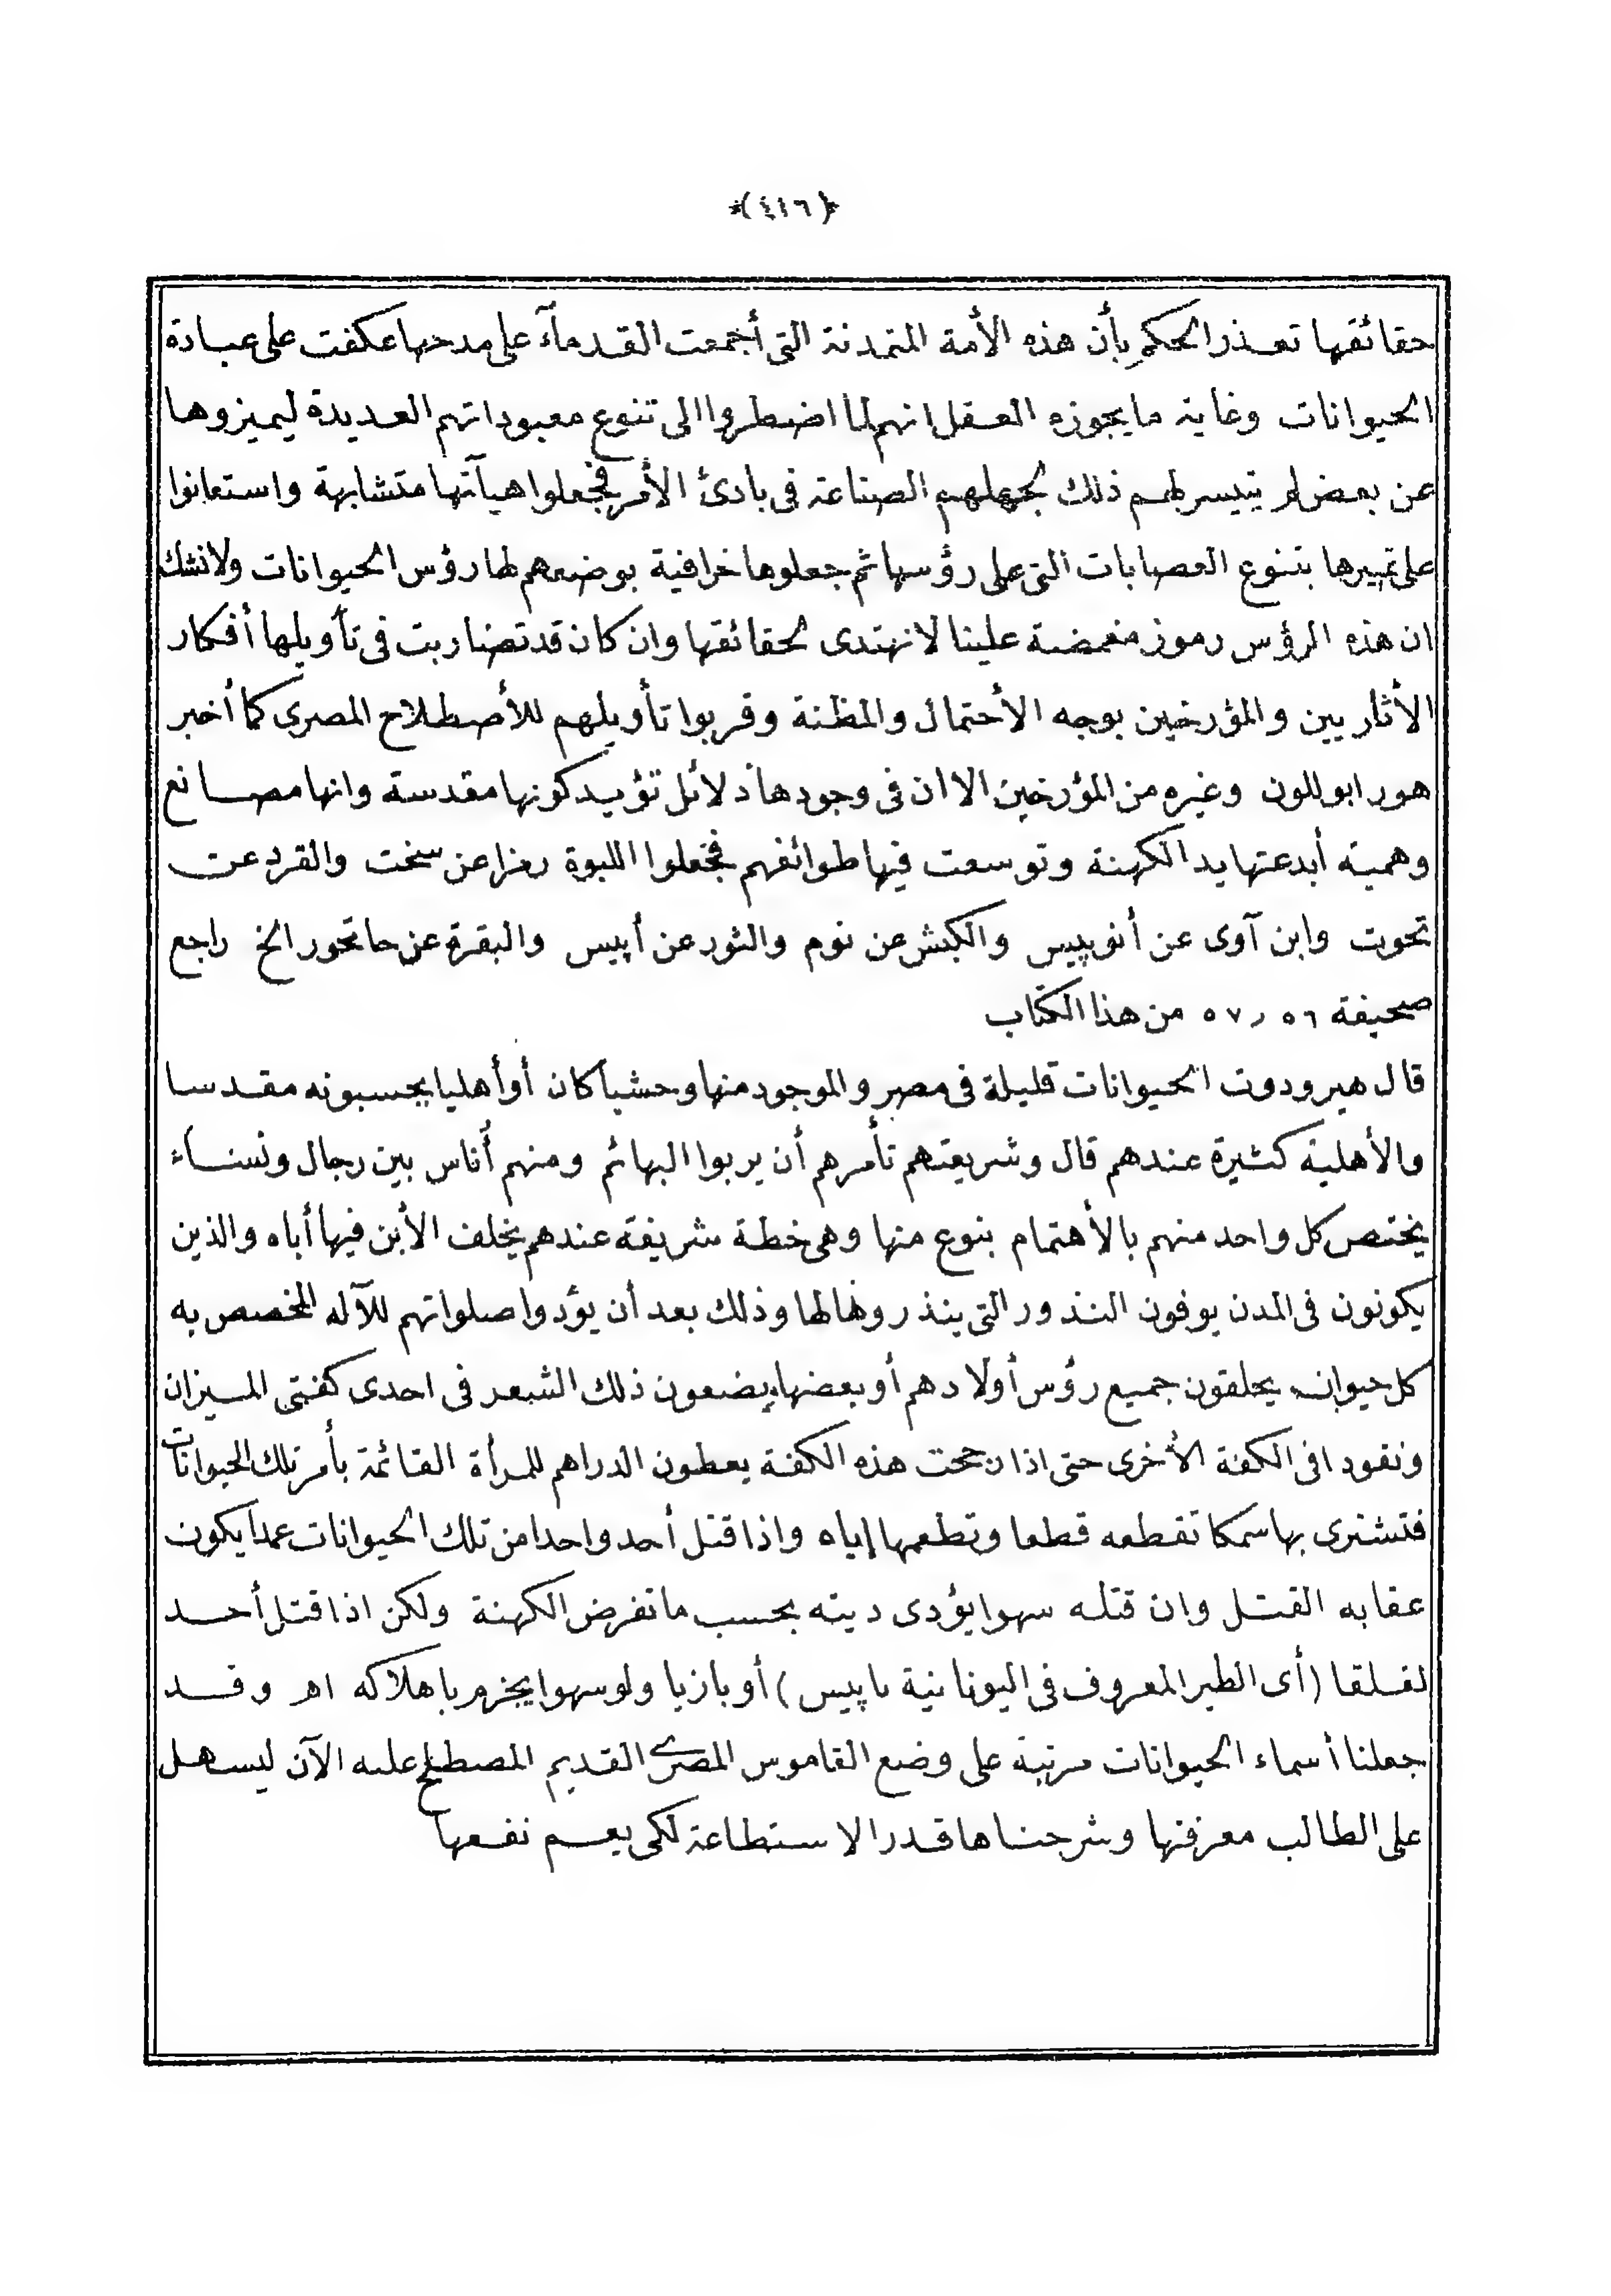 *(٤١٦)*
حقائقها تعذر الحكم بأن هذه الأمة المتمدنة التى أجمعت القدمآء على مدحها عكفت على عبادة
الحيوانات وغاية ما يجوزه العقل انهم لما اضطروا الى تنوع معبوداتهم العديدة ليميزوها
عن بعض لم يتيسر لهم ذلك لجهلهم الصناعة فى بادئ الأمر فجعلوا هيآتها متشابهة واستعانوا
على تمييزها بتنوع العصابات التى على رؤسها ثم جعلوها خرافية بوضعهم لها رؤس الحيوانات ولانشك
ان هذه الرؤس رموز مغمضة علينا لانهتدى لحقائقها وان كان قد تضاربت فى تأويلها أفكار
الأثاريين والمؤرخين بوجه الأحتمال والمظنة وقربوا تأويلهم للأصطلاح المصرى كما أخبر
هور ابوللون وغيره من المؤرخين الا ان فى وجودها دلائل تؤيد كونها مقدسة وانها مصانع
وهمية أبدعتها يد الكهنة وتوسعت فيها طوائفهم فجعلوا اللبوة رمزا عن سخت والقرد عن
تحوت وابن آوى عن أنوپيس والكبش عن نوم والثور عن أپيس والبقرة عن حاتحور الخ راجع
صحيفة ٥٦ ر ٥٧ من هذا الكتاب
قال هيرودوت الحيوانات قليلة فى مصر والموجود منها وحشيا كان أو أهليا يحسبونه مقدسا
والأهلية كثيرة عندهم قال وشريعتهم تأمرهم أن يربوا البهائم ومنهم أناس بين رجال ونساء
يختص كل واحد منهم بالأهتمام بنوع منها وهى خطة شريفة عندهم يخلف الأبن فيها أباه والذين
يكونون فى المدن يوفون النذور التى ينذروها لها وذلك بعد أن يؤدوا صلواتهم للآله المخصص به
كل حيوان يحلقون جميع رؤس أولادهم أو بعضها ويضعون ذلك الشعر فى احدى كفتى الميزان
ونقودا فى الكفة الأخرى حتى اذا رجحت هذه الكفة يعطون الدراهم للمرأة القائمة بأمر تلك الحيوانات
فتشترى بها سمكا تقطعه قطعا وتطعمها إياه واذا قتل أحد واحدا من تلك الحيوانات عمدا يكون
عقابه القتل وان قتله سهوا يؤدى ديته بحسب ما تفرض الكهنة ولكن اذا قتل أحد
لقلقا (أى الطير المعروف فى اليونانية باپيس) أو بازيا ولو سهوا يجزم باهلاكه اهـ وقد
جعلنا أسماء الحيوانات مرتبة على وضع القاموس المصرى القديم المصطلح عليه الآن ليسهل
على الطالب معرفتها وشرحناها قدر الاستطاعة لكى يعم نفعها